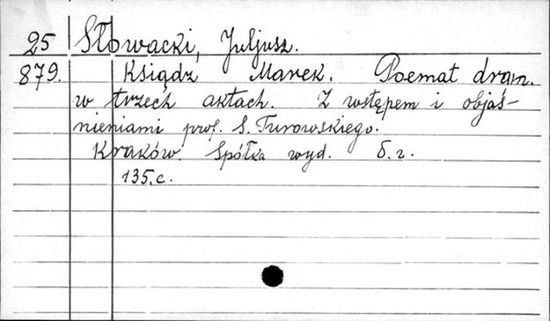 25 Słowacki, Juljusz.
879. Ksiądz Marek. Poemat dram.
w trzech aktach. Z wstępem i objaś-
nieniami prof. S. Turowskiego.
Kraków. Spółka wyd. б.г.
135.с.